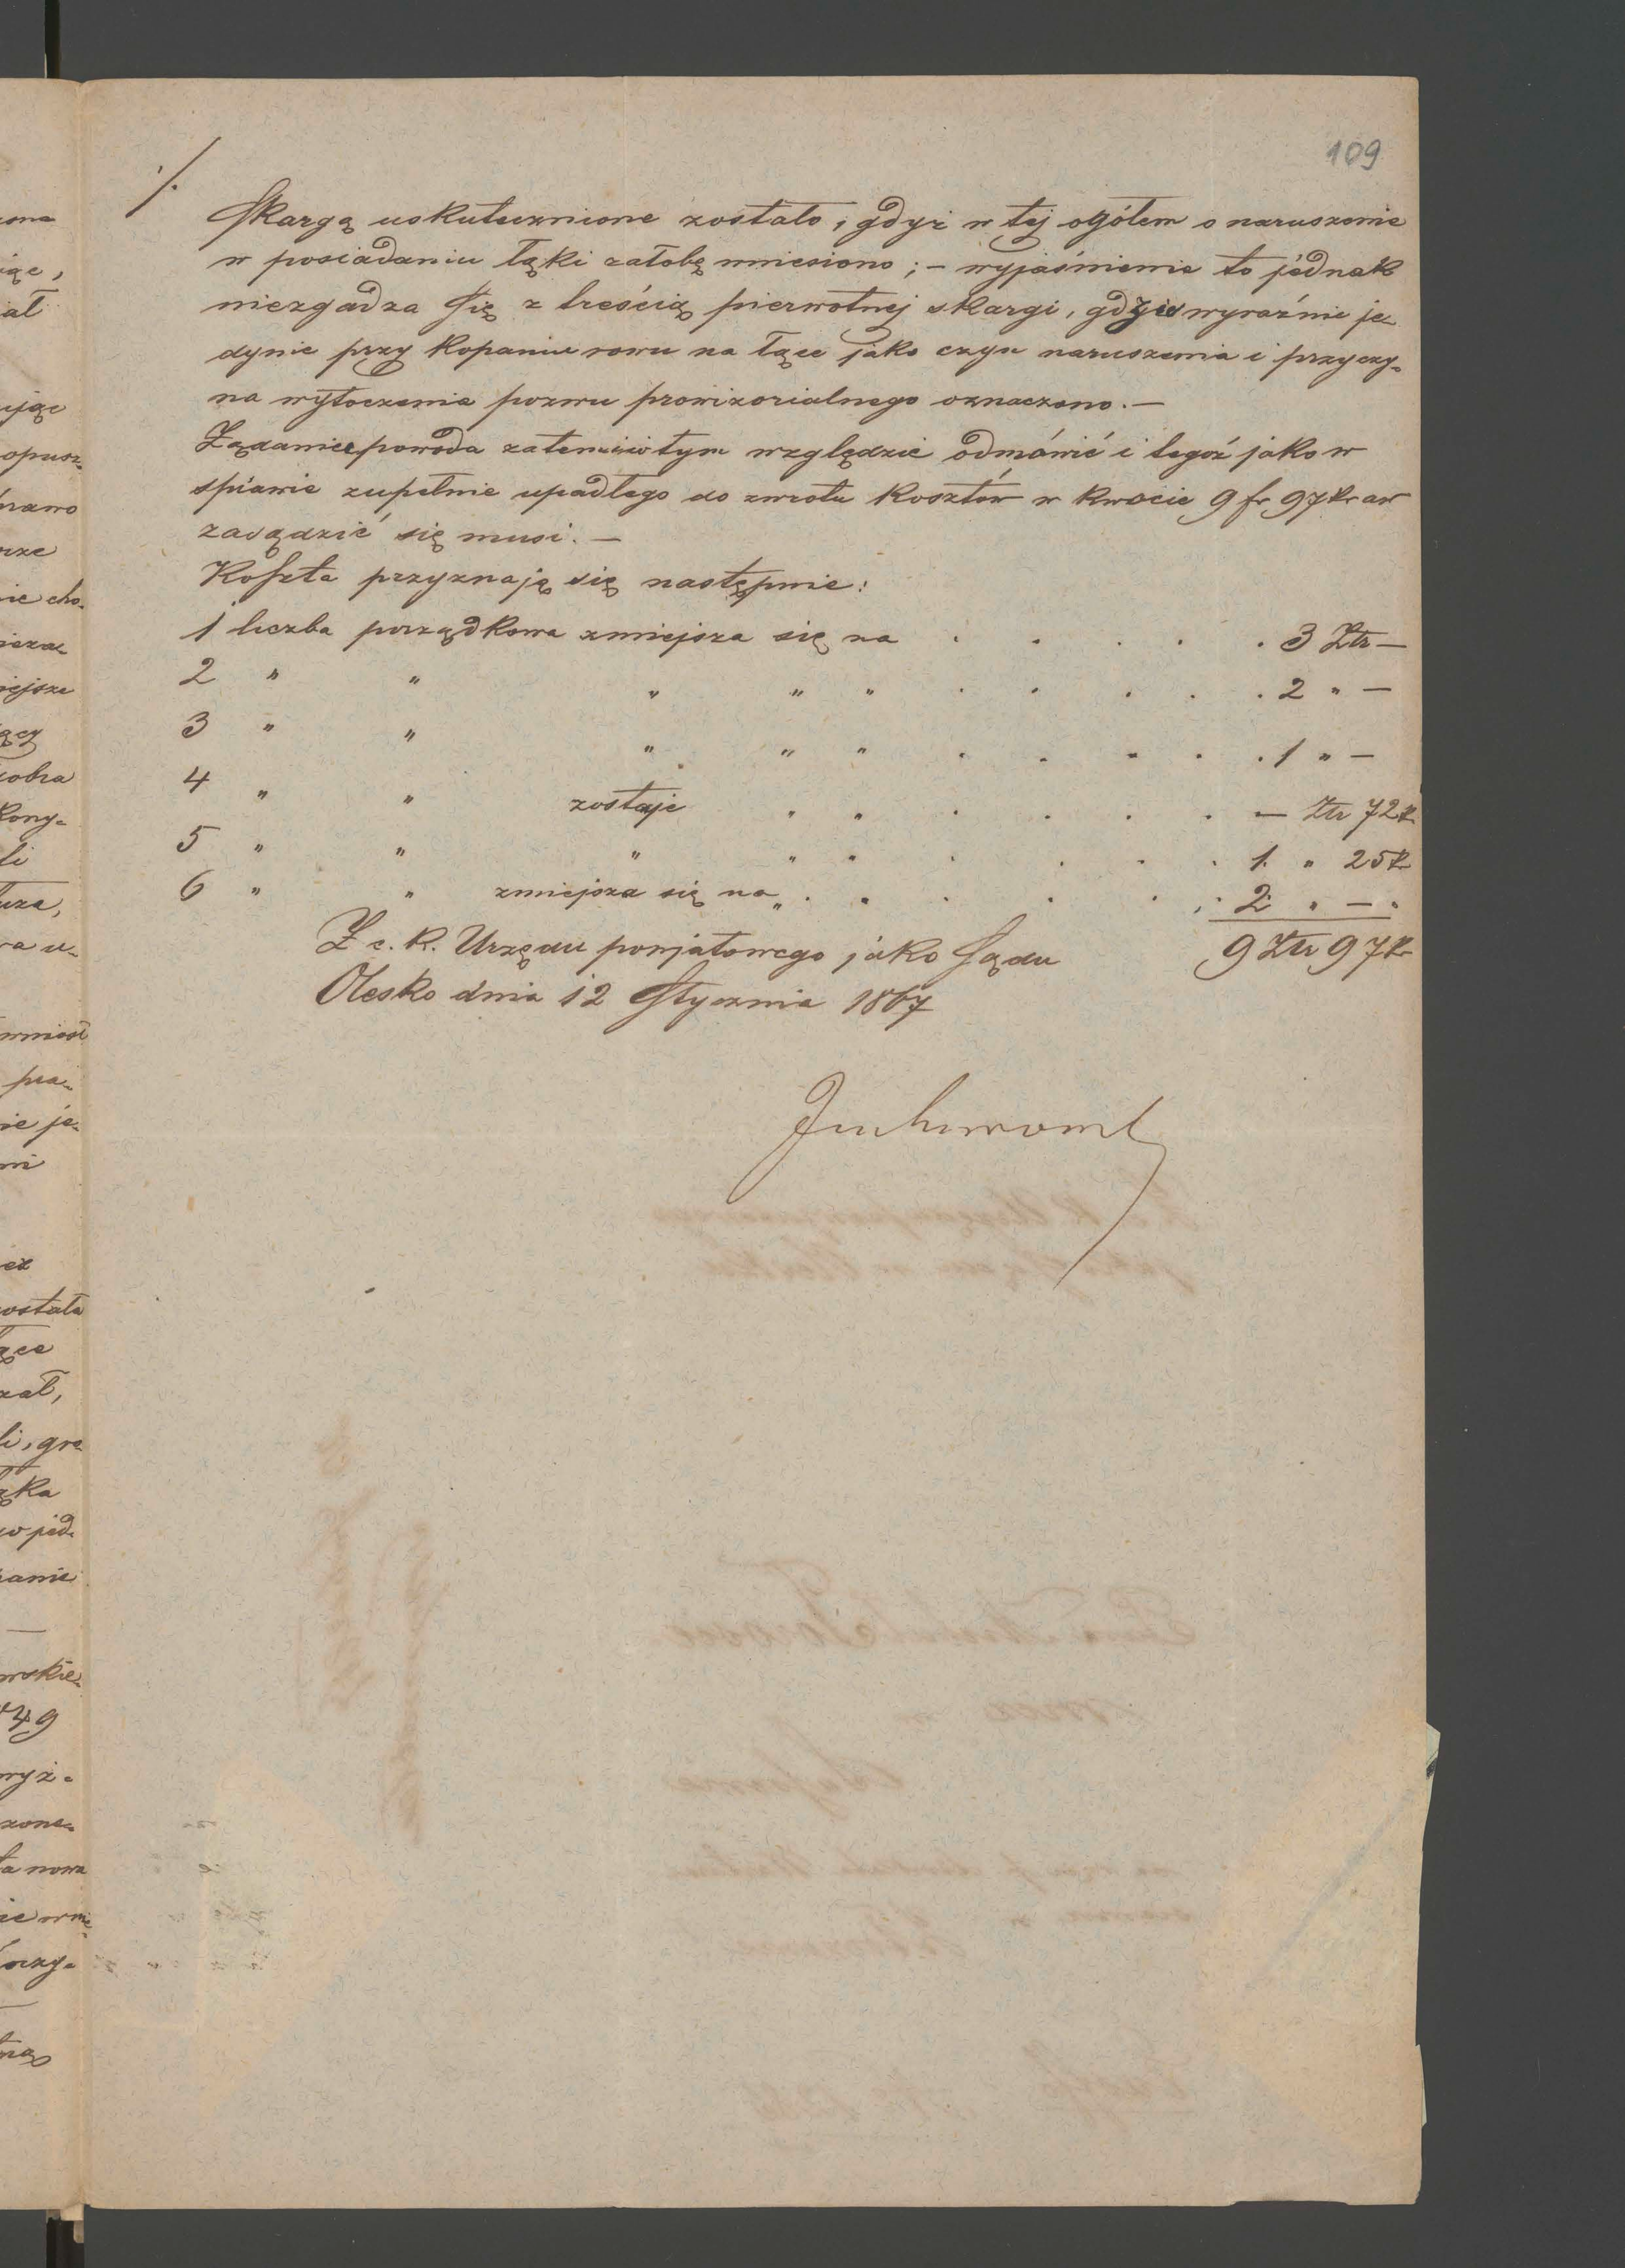 109
./.
Skargą uskutecznione zostało, gdyż w tej ogółem o naruszenie
w posiadaniu łąki żałobę wniesiono; – wyjaśnienie to jednak
niezgadza się z treścią pierwotnej skargi, gdzie wyraźnie je-
dynie przy kopaniu rowu na łące jako czyn naruszenia i przyczy-
na wytoczenia pozwu prowizorialnego oznaczono. –
Żądanie powoda zatem w tym względzie odmówić i tegoż jako w
sprawie zupełnie upadłego do zwrotu kosztów w kwocie 9 fr 97 kr aw
zasądzić się musi. –
Koszta przyznają się następnie:
1 liczba porządkowa zmiejsza się na . . . . . 3 Złr –
2 " " " " " . . . . . 2 " –
3 " " " " " . . . . . 1 " –
4 " " zostaje " " . . . . – Złr 72 k
5 " " " " " . . . . 1 " 25 k
6 " " zmiejsza się na " . . . . . 2 " – "
9 Złr 97 k
Z c. k. Urzędu powjatowego jako Sądu
Olesko dnia 12 Stycznia 1867